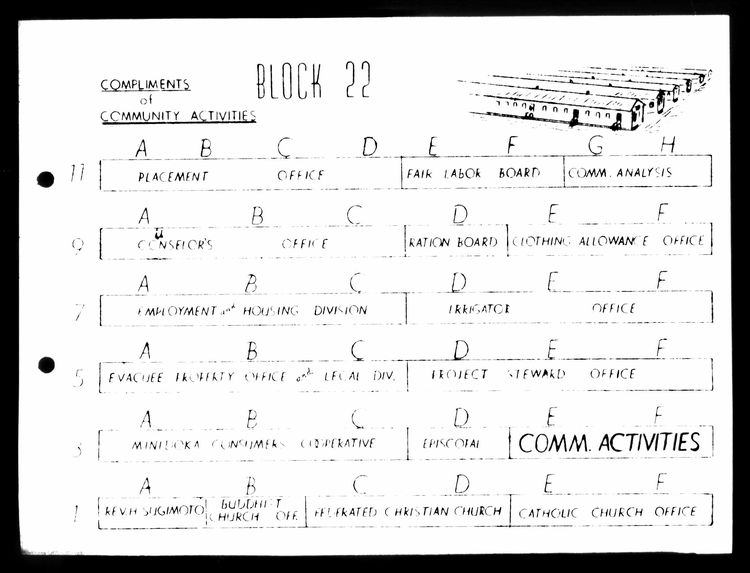 COMPLIMENTS
of
COMMUNITY ACTIVITIES
BLOCK 22
A B C D E F G H
11 PLACEMENT OFFICE FAIR LABOR BOARD COMM. ANALYSIS
A B C D E F
9 COUNSELOR'S OFFICE RATION BOARD CLOTHING ALLOWANCE OFFICE
A B C D E F
7 EMPLOYMENT and HOUSING DIVISION IRRIGATOR OFFICE
A B C D E F
5 EVACUEE PROPERTY OFFICE and LEGAL DIV. PROJECT STEWARD OFFICE
A B C D E F
3 MINIDOKA CONSUMERS COOPERATIVE EPISCOPAL COMM. ACTIVITIES
A B C D E F
1 REV. H SUGIMOTO BUDDHIST CHURCH OFF. FEDERATED CHRISTIAN CHURCH CATHOLIC CHURCH OFFICE